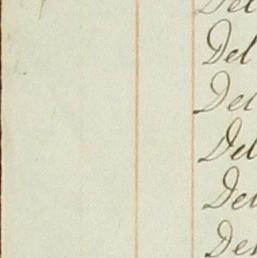 Del
Del
Del
Del
Del
Der